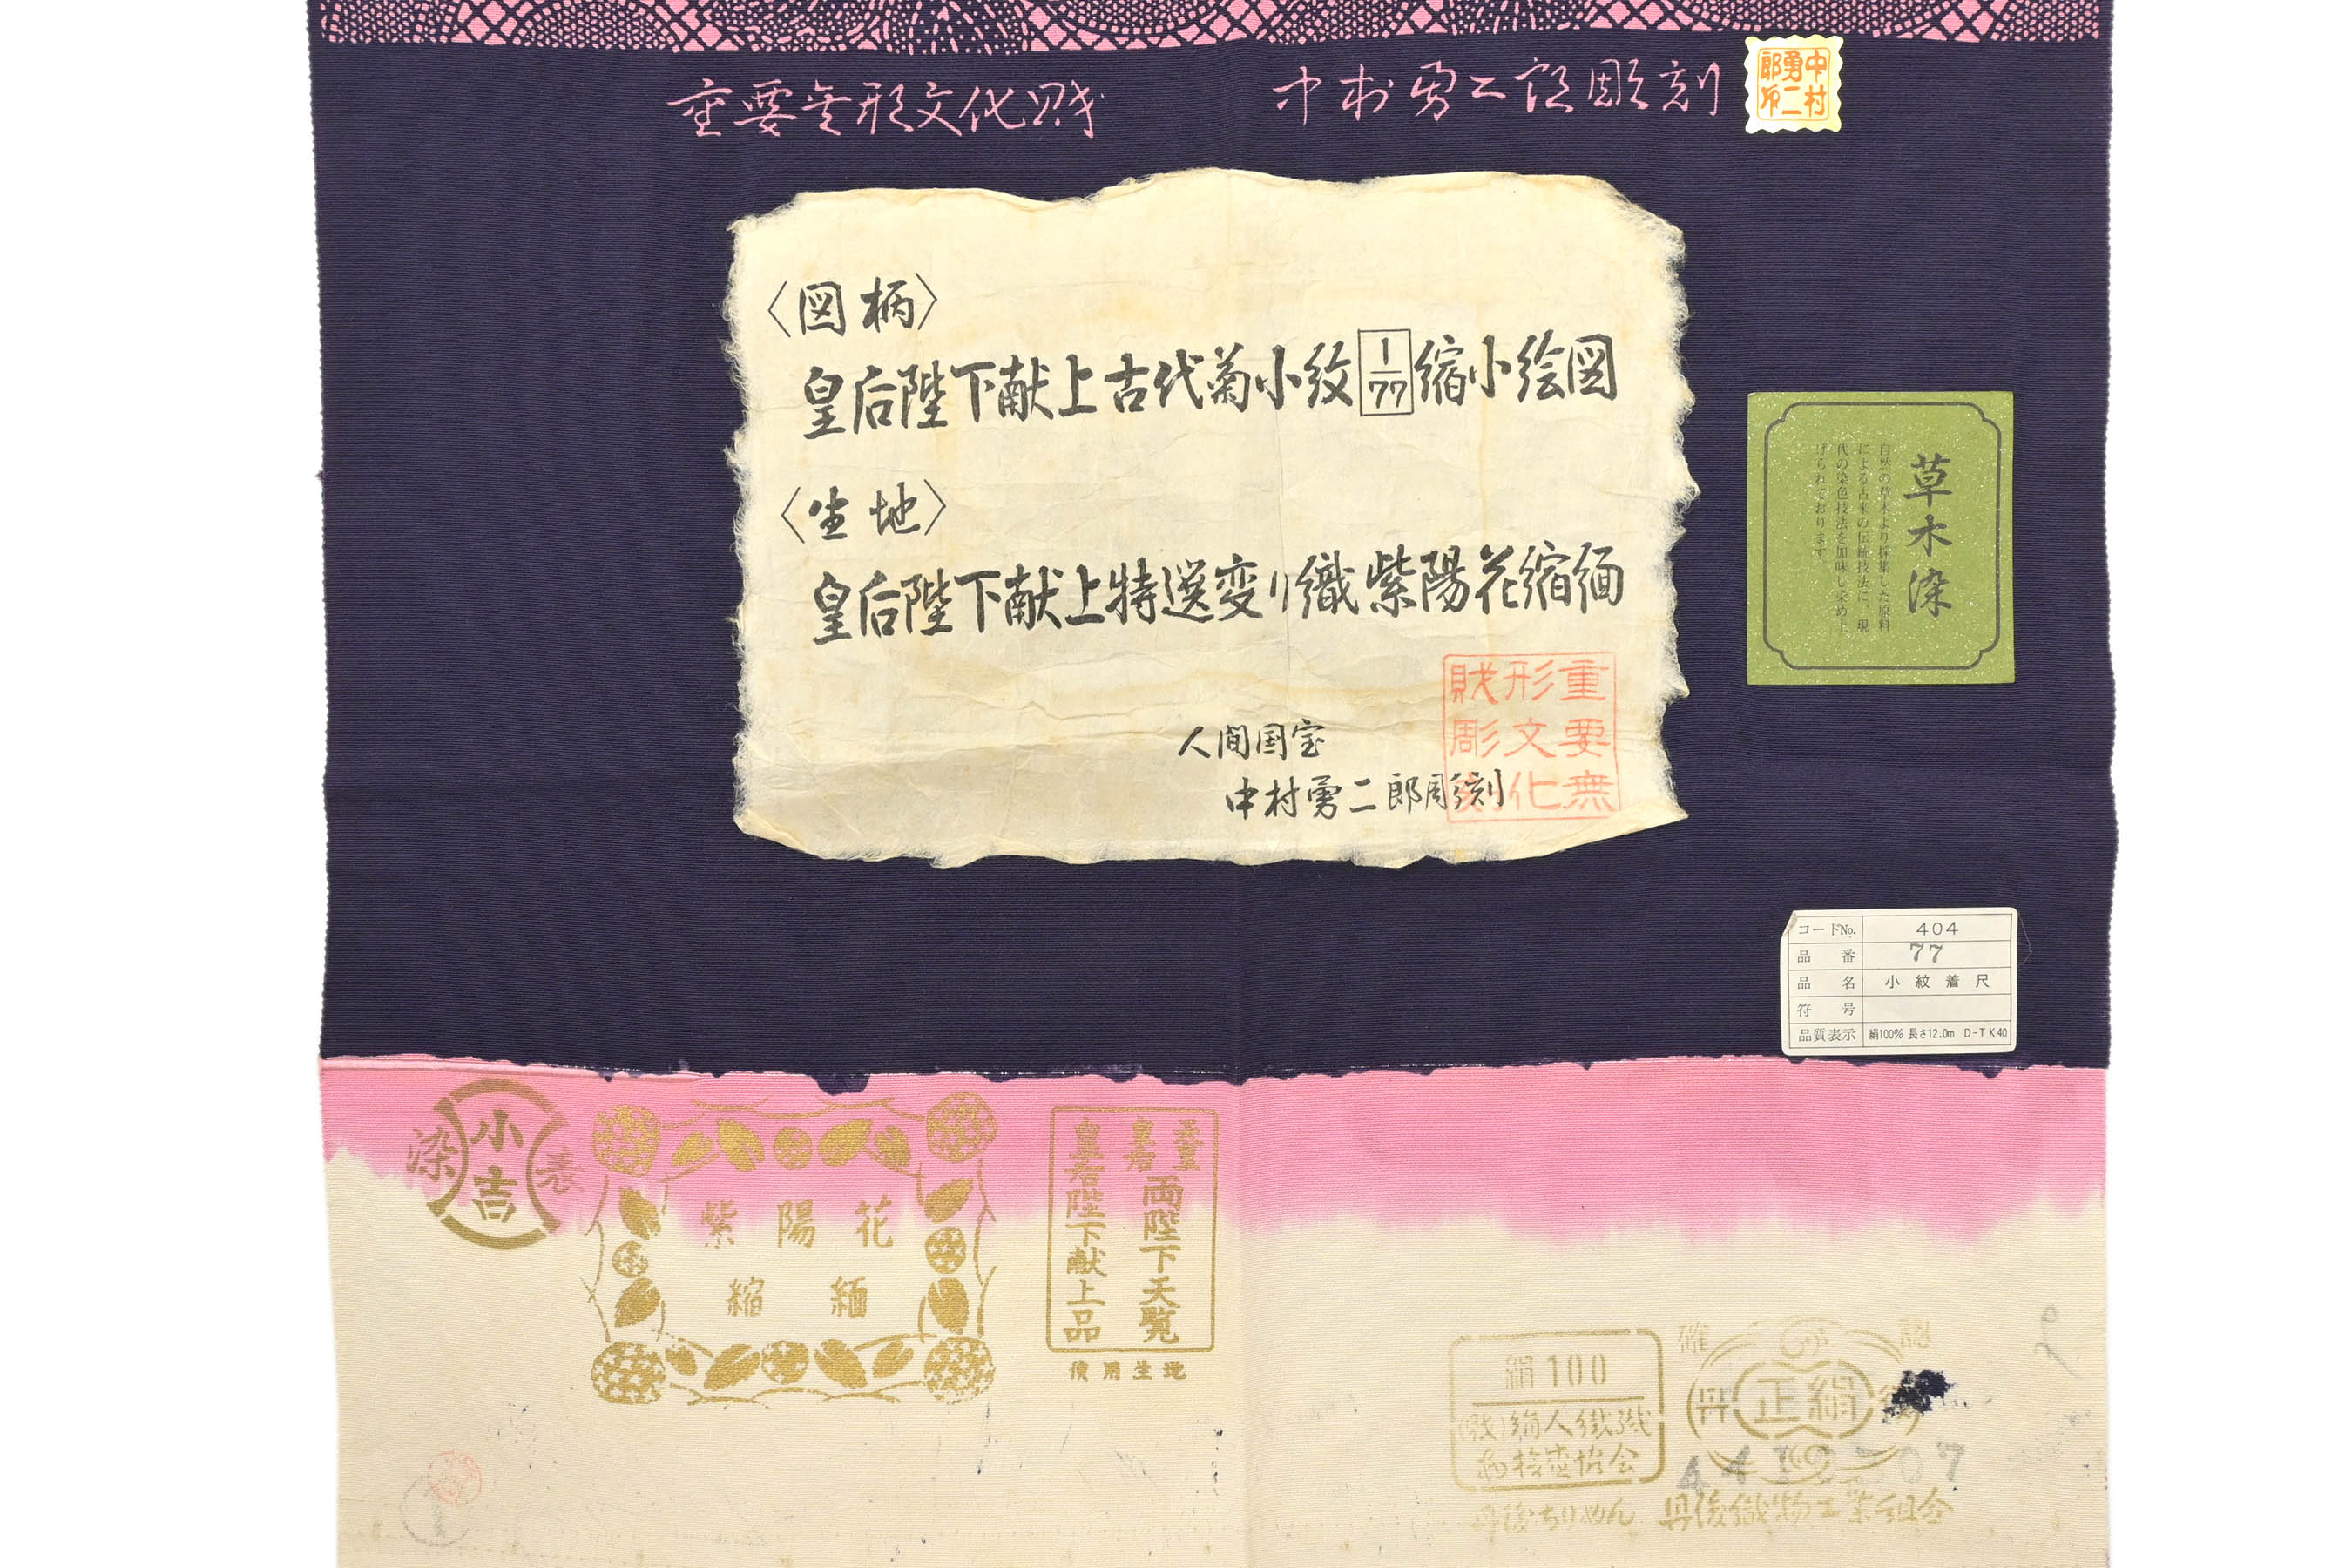 重要無形文化財 中村勇二郎彫刻
中村
勇二
郎印
〈図柄〉
皇后陛下献上古代菊小紋1/77縮小絵図
〈生地〉
皇后陛下献上特選変り織紫陽花縮緬
人間国宝
中村勇二郎彫刻
重要無
形文化
財彫刻
草木染
自然の草木より採集した原料
による古来の伝統技法に、現
代の染色技法を加味し染め上
げられております。
コードNo. 404
品番 77
品名 小紋着尺
符号
品質表示 絹100% 長さ12.0m D-TK40
染 小吉 表
紫陽花
縮緬
天皇
皇后
両陛下天覧
皇后陛下献上品
使用生地
絹100
(財)絹人繊織
物検査協会
確認
丹 正絹 後
丹後ちりめん 丹後織物工業組合